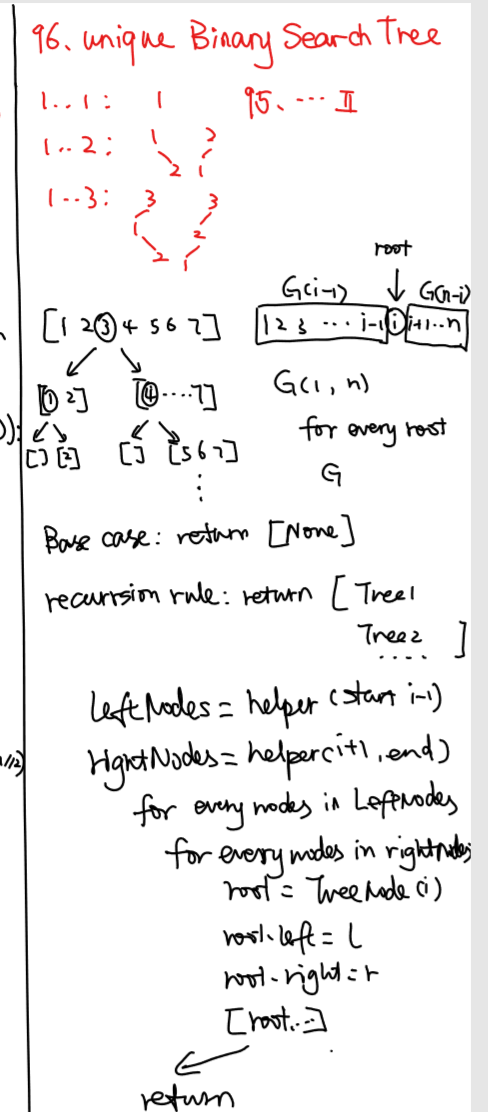 96. unique Binary Search Tree
1..1: 1
95. ... II
1..2: 1 2
2 1
1--3: 3 3
1 2
2 1
root
G(i-1) G(n-i)
[1 2 3 4 5 6 7]
1 2 3 ... i-1 i i+1...n
[1 2] [4....7]
G(1, n)
for every root
[] [2] [] [5 6 7]
G
Base case: return [None]
recurrsion rule: return [Tree1
Tree2
.... ]
Left Nodes = helper (start i-1)
rightNodes = helper(i+1, end)
for every nodes in LeftNodes
for every nodes in rightNodes
root = TreeNode(i)
root.left = l
root.right = r
[root...]
return